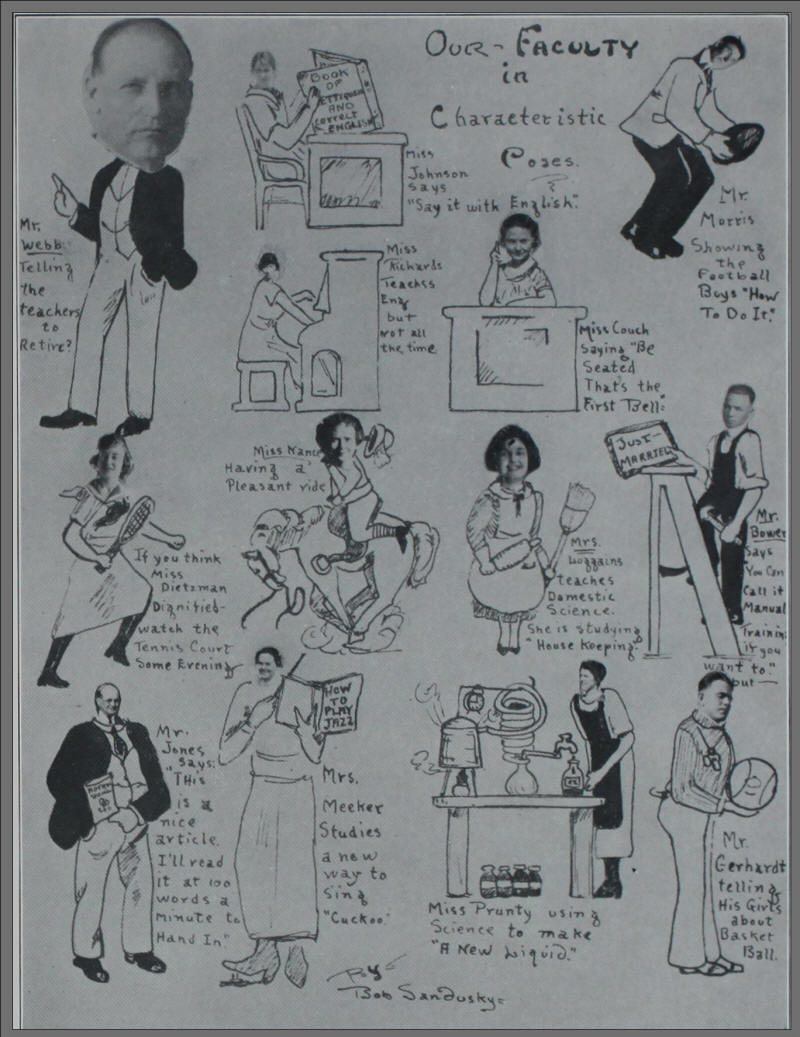 Our - Faculty
in
Characteristic
Poses.
Mr.
Webb:
Telling
the
teachers
to
Retire?
BOOK
OF
ETTIQUETTE
AND
CORRECT
ENGLISH
Miss
Johnson
says
"Say it with English".
Mr.
Morris
Showing
the
Football
Boys "How
To Do It."
Miss
Richards
Teaches
Eng
but
not all
the time
Miss Couch
Saying "Be
Seated
That's the
First Bell"
If you think
Miss
Dietzman
Dignified-
watch the
Tennis Court
Some Evening
Miss Nance
Having a
Pleasant ride
Mrs.
Loggains
teaches
Domestic
Science.
She is studying
"House Keeping."
JUST-
MARRIED
Mr.
Bower
Says
You Can
Call it
Manual
Training
if you
want to."
but —
Mr.
Jones
says:
"This
is a
nice
article.
I'll read
it at 100
words a
minute to
Hand In."
HOW
TO
PLAY
JAZZ
Mrs.
Meeker
Studies
a new
way to
sing
"Cuckoo."
Miss Prunty using
Science to make
"A New Liquid."
Mr.
Gerhardt
telling
His Girls
about
Basket
Ball.
By
Bob Sandusky